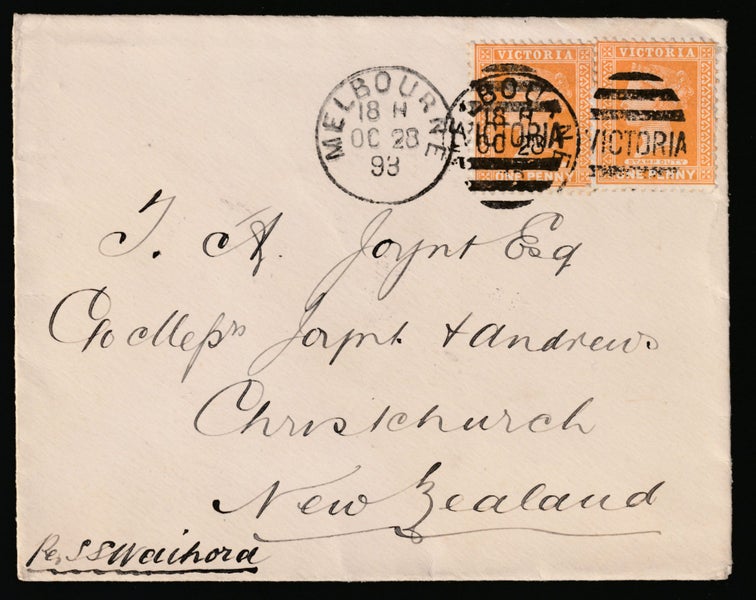 VICTORIA
VICTORIA
MELBOURNE
18 H
OC 28
93
BOURNE
18 H
OC 28
VICTORIA
VICTORIA
STAMP DUTY
ONE PENNY
ONE PENNY
T. A. Joynt Esq
C/o Messrs Joynt & Andrews
Christchurch
New Zealand
Per SS Waihora